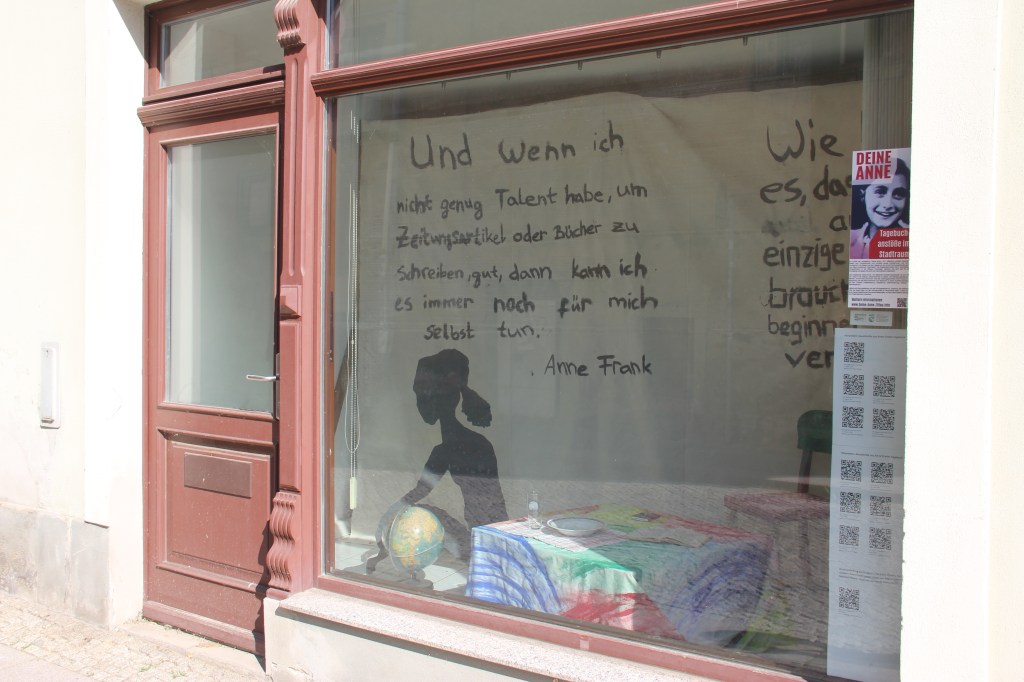 Und wenn ich
nicht genug Talent habe, um
Zeitungsartikel oder Bücher zu
schreiben, gut, dann kann ich
es immer noch für mich
selbst tun.
. Anne Frank
Wie
es, das
einzige
brauch
beginn
ver
DEINE
ANNE
Tagebuch
anstöße im
Stadtraum